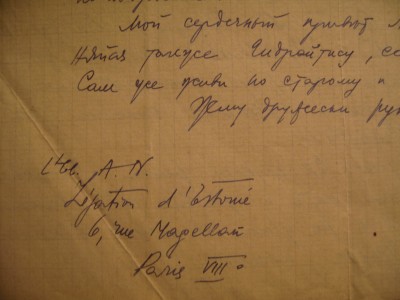 Мой сердечный привет
также Гидрайтису,
Сам уже живи по старому и
Жму дружески рук
A. N.
Légation d'Estonie
6, rue Magellan
Paris VIII e